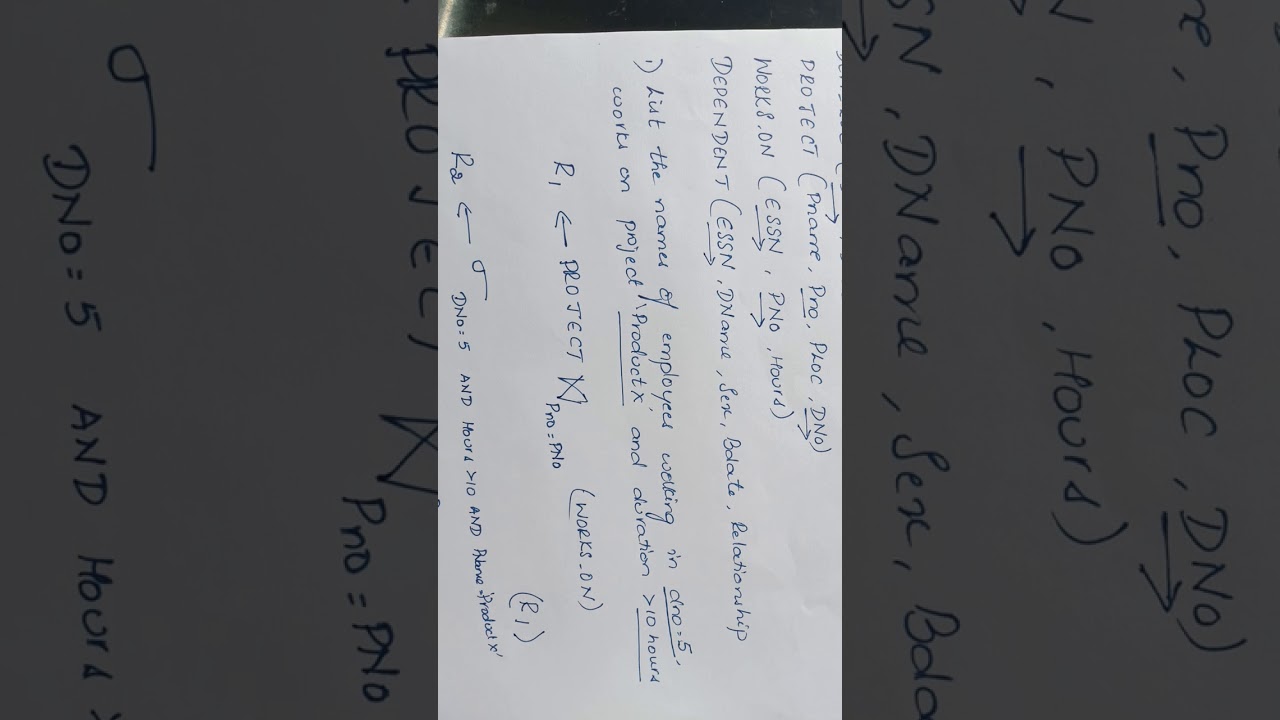 PROJECT (Pname, Pno, PLOC, DNo)
WORKS_ON (ESSN, PNo, Hours)
DEPENDENT (ESSN, DName, Sex, Bdate, Relationship
1) List the names of employees working in dno=5,
works on project 'ProductX' and duration >10 hours
R1 ← PROJECT ⋈ Pno=PNo (WORKS_ON)
R2 ← σ DNo=5 AND Hours >10 AND PName='ProductX' (R1)